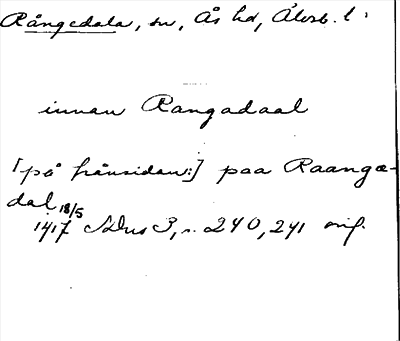 Rångedala, sn, Ås hd, Älvsb. l.
innan Rangadaal
[på frånsidan:] paa Raangæ-
dal 18/5
1417 SDns 3, s. 240, 241 orig.